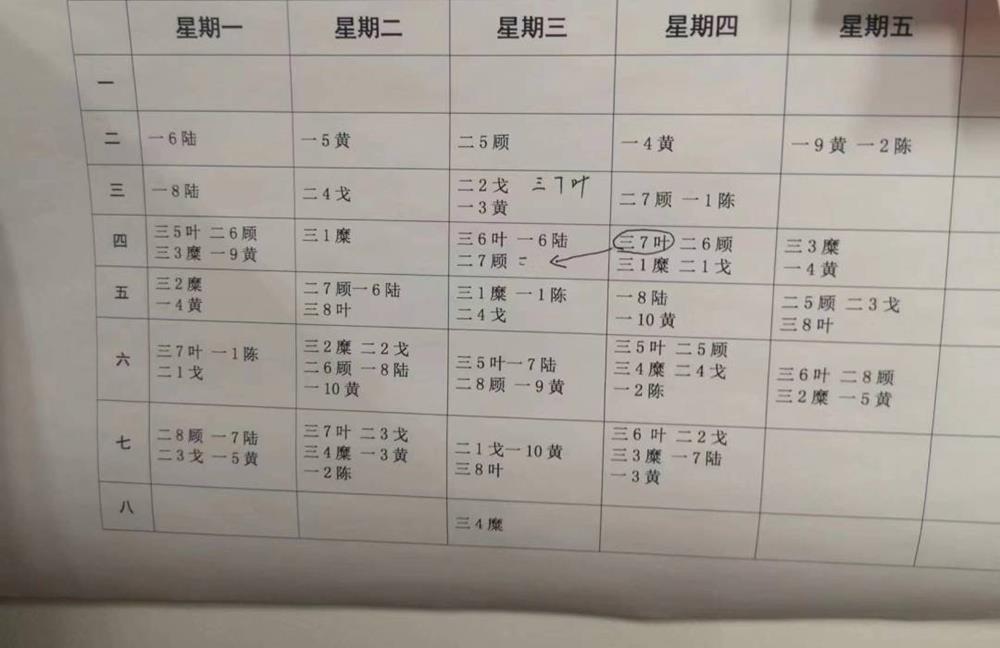 星期一 星期二 星期三 星期四 星期五
一
二 一6陆 一5黄 二5顾 一4黄 一9黄 一2陈
三 一8陆 二4戈 二2戈 三7叶 二7顾 一1陈
一3黄
四 三5叶 二6顾 三1糜 三6叶 一6陆 三7叶 二6顾 三3糜
三3糜 一9黄 二7顾 三1糜 二1戈 一4黄
五 三2糜 二7顾一6陆 三1糜 一1陈 一8陆 二5顾 二3戈
一4黄 三8叶 二4戈 一10黄 三8叶
六 三7叶 一1陈 三2糜 二2戈 三5叶一7陆 三5叶 二5顾 三6叶 二8顾
二1戈 二6顾 一8陆 二8顾 一9黄 三4糜 二4戈 三2糜 一5黄
一10黄 一2陈
七 二8顾 一7陆 三7叶 二3戈 二1戈一10黄 三6叶 二2戈
二3戈 一5黄 三4糜 一3黄 三8叶 三3糜 一7陆
一2陈 一3黄
八 三4糜